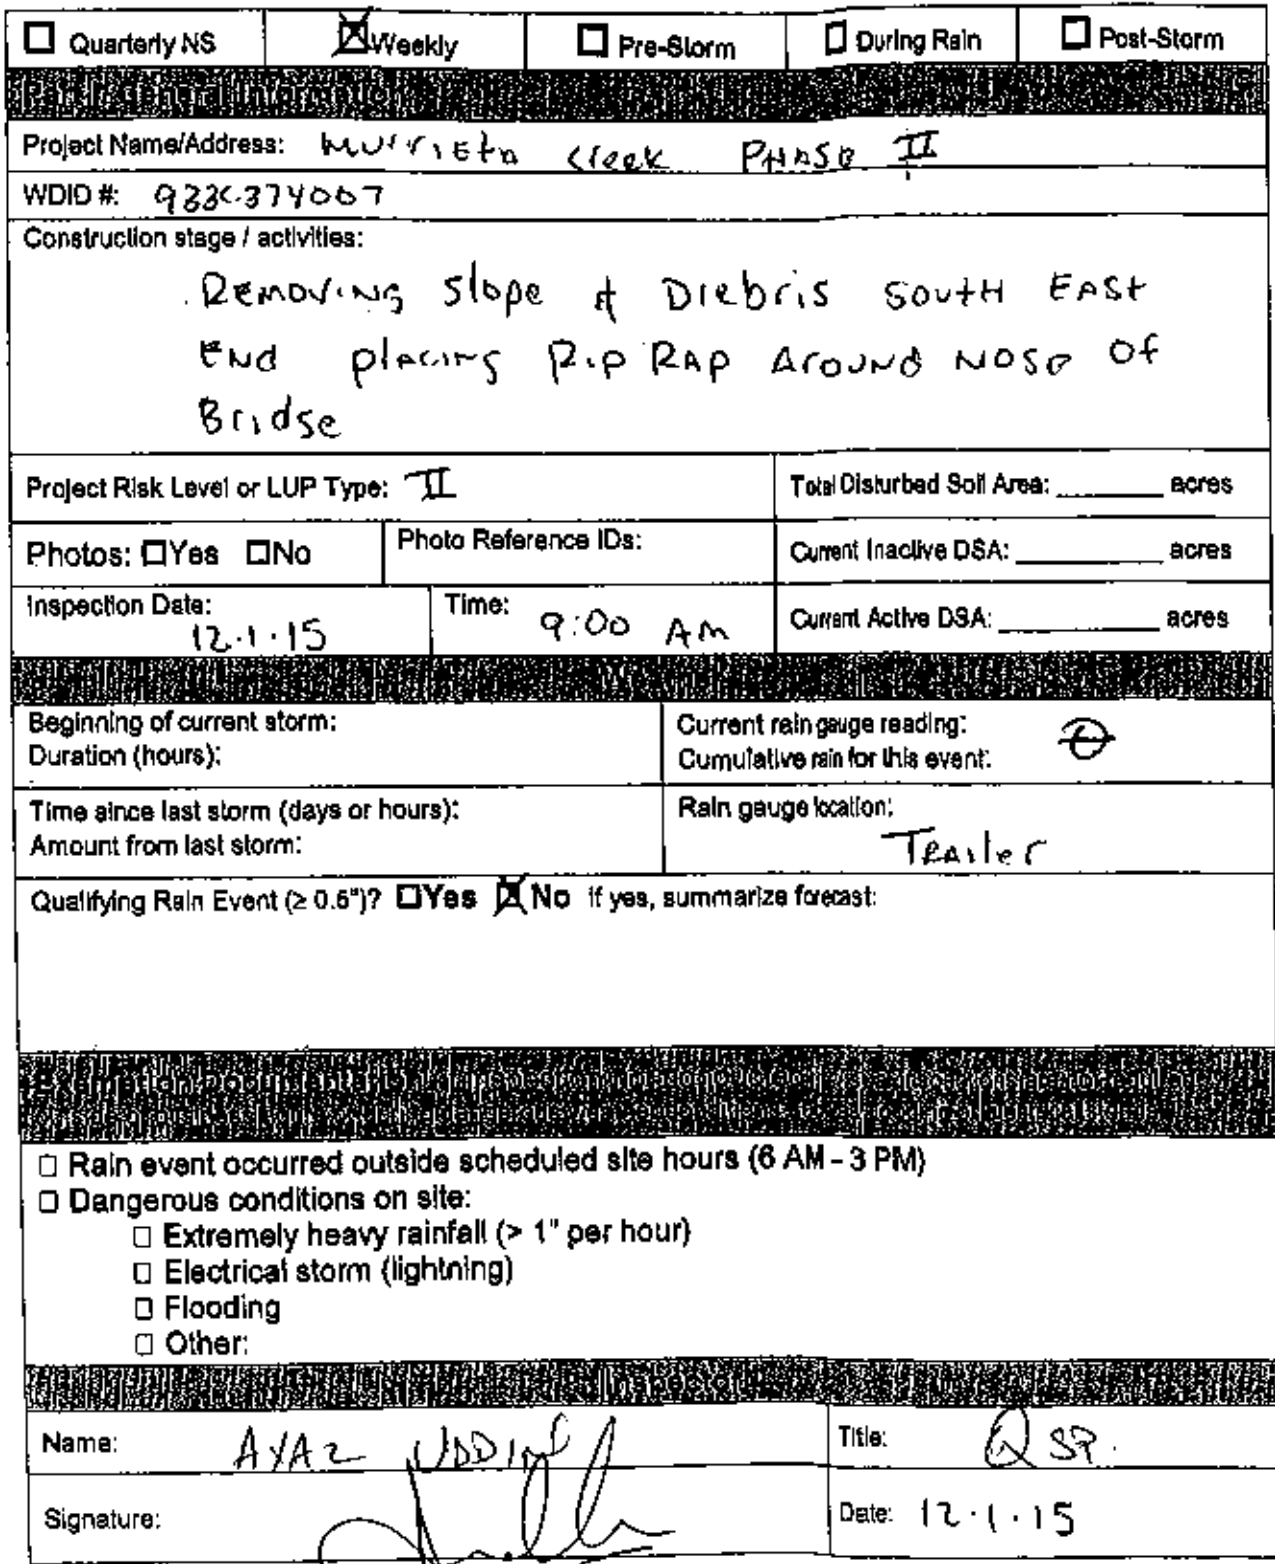 ☐ Quarterly NS ☒ Weekly ☐ Pre-Storm ☐ During Rain ☐ Post-Storm
Part I. General Information
Project Name/Address: Murrieta Creek PHASE II
WDID #: 933C374007
Construction stage / activities:
Removing Slope & Diebris South East
End placing Rip Rap Around Nose Of
Bridge
Project Risk Level or LUP Type: II Total Disturbed Soil Area: ______ acres
Photos: ☐Yes ☐No Photo Reference IDs: Current Inactive DSA: ______ acres
Inspection Date: 12.1.15 Time: 9:00 AM Current Active DSA: ______ acres
Beginning of current storm: Current rain gauge reading: 0
Duration (hours): Cumulative rain for this event:
Time since last storm (days or hours): Rain gauge location:
Amount from last storm: Trailer
Qualifying Rain Event (≥ 0.5")? ☐Yes ☒No If yes, summarize forecast:
Exemption Documentation
☐ Rain event occurred outside scheduled site hours (6 AM - 3 PM)
☐ Dangerous conditions on site:
☐ Extremely heavy rainfall (> 1" per hour)
☐ Electrical storm (lightning)
☐ Flooding
☐ Other:
Inspector
Name: AYAZ UDDIN Title: QSP.
Signature: Date: 12.1.15